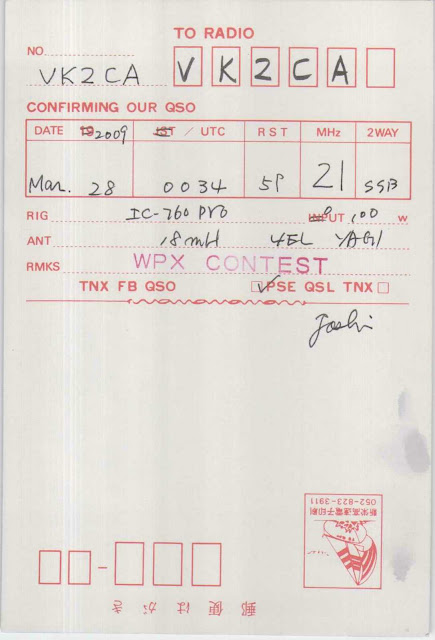 TO RADIO
NO. VK2CA VK2CA
CONFIRMING OUR QSO
DATE 19 2009 JST / UTC RST MHz 2WAY
Mar. 28 0034 59 21 SSB
RIG IC-760 Pro INPUT 100 w
ANT 18mH 4EL YAGI
RMKS WPX CONTEST
TNX FB QSO PSE QSL TNX
052-823-3911
新栄高速電子印刷
郵便はがき